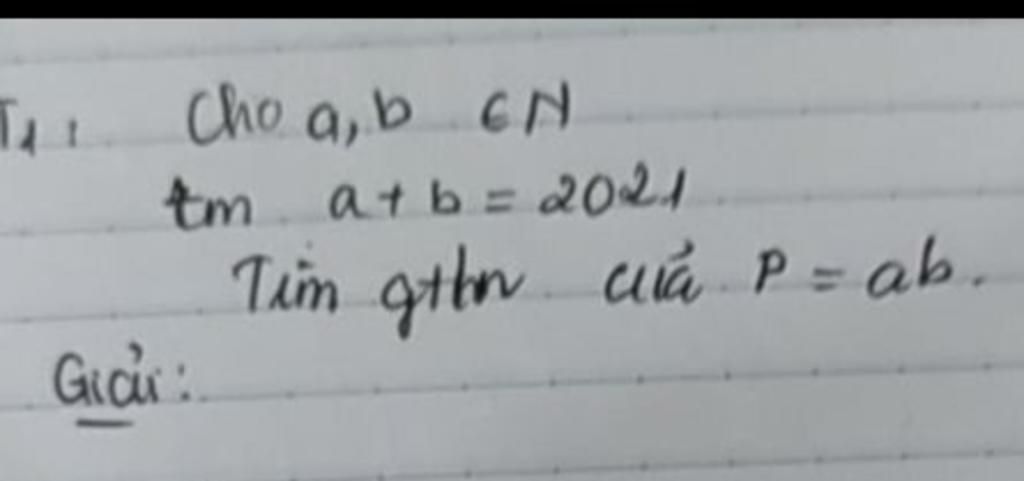 T1: Cho a, b ∈ N
tm a + b = 2021
Tìm gtln của P = ab.
Giải: